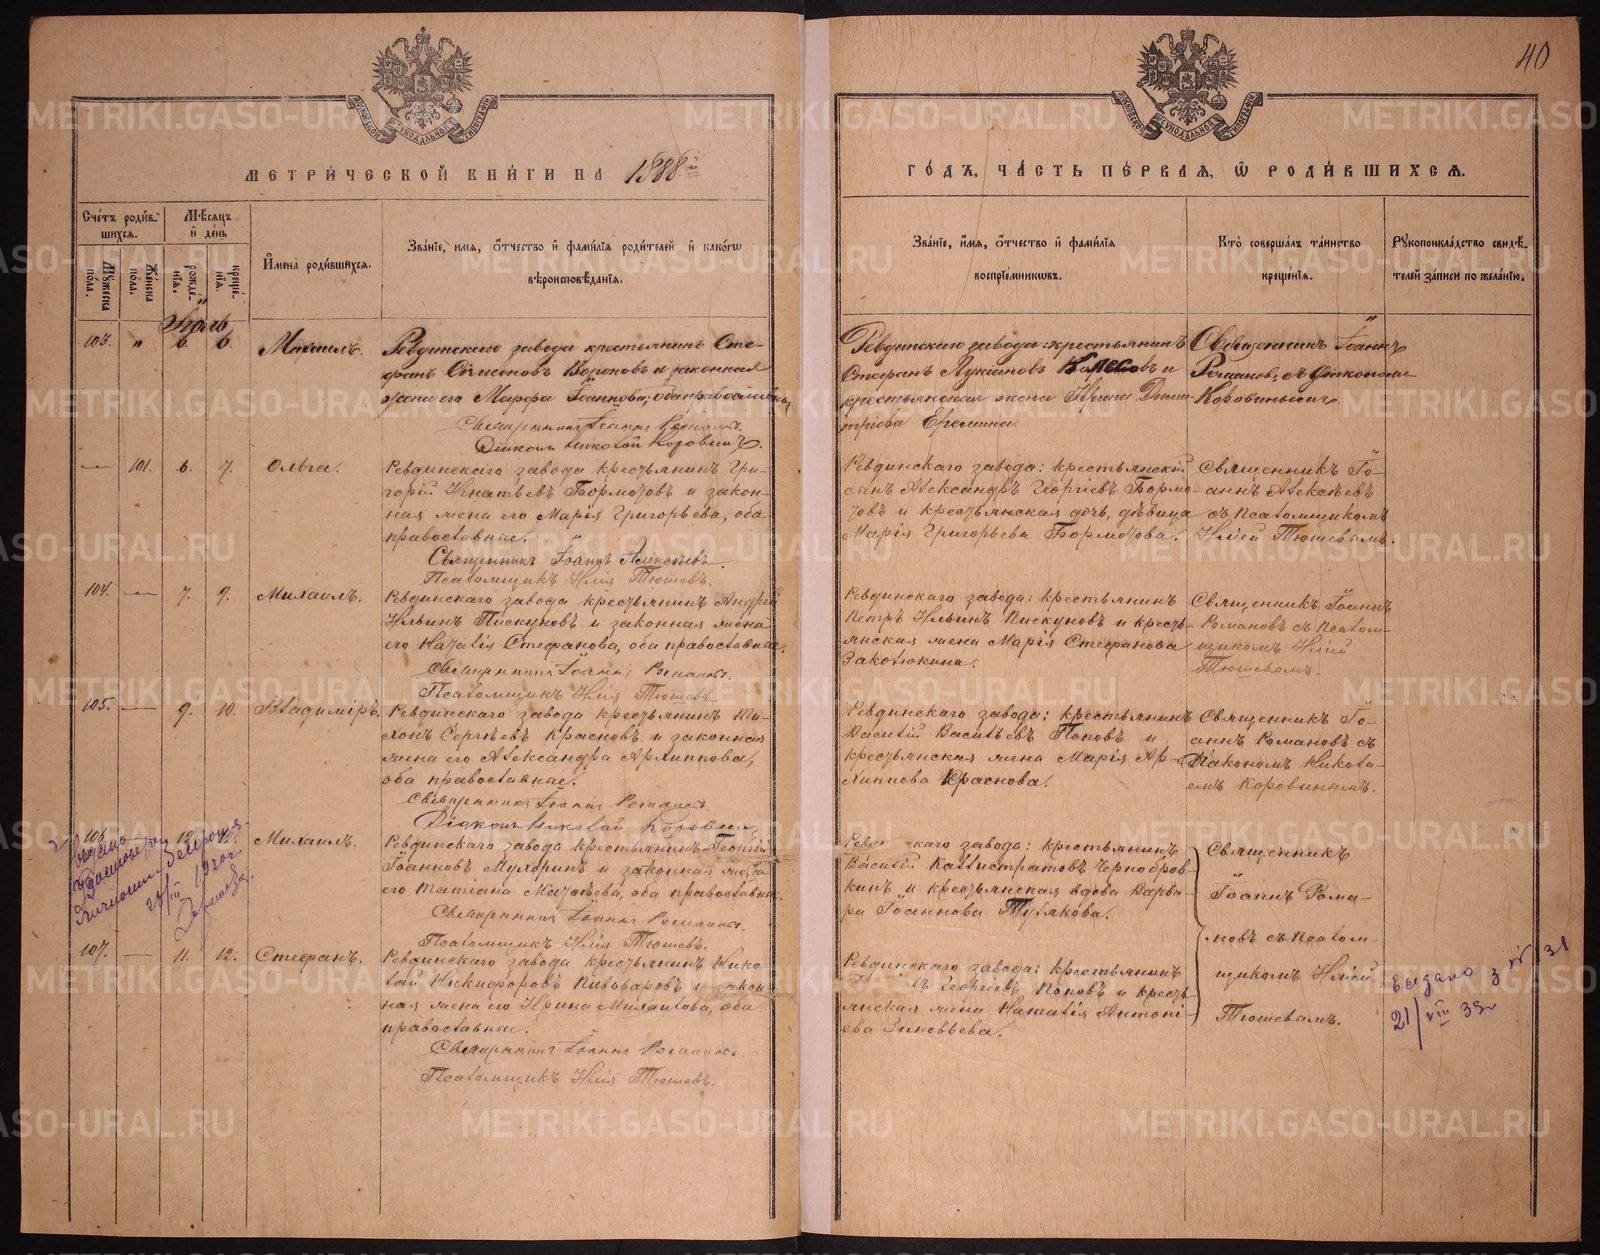 40
МЕТРИ́ЧЕСКОЙ КНИ́ГИ НА 1888й
ГО́ДЪ, ЧА́СТЬ ПЕ́РВАЯ, Ѡ РОДИ́ВШИХСЯ.
Сче́тъ роди́в-
шихся.
Мѣсяцъ
и҆ де́нь
Му́жеска
пола.
Же́нска
пола.
рожде́-
нїя.
креще́-
нїя.
И҆мена̀ роди́вшихся.
Зва́нїе, имя, о҆́тчество и҆ фами́лїя роди́телей и҆ како́гѡ
вѣроисповѣ́данїя.
Зва́нїе, и҆́мя, о҆́тчество и҆ фами́лїя
воспрїе́мникѡвъ.
Кто̀ соверша́лъ та́инство
креще́нїя.
Рꙋкоприкла́дство свидѣ́-
телей за́писи по жела́нїю.
Іюль
103. " 6. 6. Михаилъ.
Ревдинскаго завода крестьянинъ Сте-
фанъ Симоновъ Вороновъ и законная
жена его Марѳа Іоаннова, оба православны,
Священникъ Іоаннъ Романовъ.
Діаконъ Николай Коровинъ.
Ревдинскаго завода: крестьянинъ
Стефанъ Лукіановъ и
крестьянская жена Ирина Дими-
тріева Еремина.
Священникъ Іоаннъ
Романовъ съ діакономъ
Коровинымъ
— 101. 6. 7. Ольга.
Ревдинскаго завода крестьянинъ Гри-
горій Игнатьевъ Бормотовъ и закон-
ная жена его Марія Григорьева, оба
православные.
Священникъ Іоаннъ Алексѣевъ.
Псаломщикъ Илія Тюшевъ.
Ревдинскаго завода: крестьянскій
сынъ Александръ Георгіевъ Бормо-
товъ и крестьянская дочь, дѣвица
Марія Григорьева Бормотова.
Священникъ Іо-
аннъ Алексѣевъ
съ псаломщикомъ
Иліей Тюшевымъ.
104. — 7. 9. Михаилъ.
Ревдинскаго завода крестьянинъ Андрей
Ильинъ Пискуновъ и законная жена
его Наталія Стефанова, оба православные.
Священникъ Іоаннъ Романовъ.
Псаломщикъ Илія Тюшевъ.
Ревдинскаго завода: крестьянинъ
Петръ Ильинъ Пискуновъ и кресть-
янская жена Марія Стефанова
Закотюкина.
Священникъ Іоаннъ
Романовъ съ псалом-
щикомъ Иліей
Тюшевымъ.
105. — 9. 10. Владиміръ.
Ревдинскаго завода крестьянинъ Ти-
хонъ Сергѣевъ Красновъ и законная
жена его Александра Архиппова,
оба православные.
Священникъ Іоаннъ Романовъ.
Діаконъ Николай Коровинъ
Ревдинскаго завода: крестьянинъ
Василій Васильевъ Поповъ и
крестьянская жена Марія Ар-
хиппова Краснова.
Священникъ Іо-
аннъ Романовъ съ
діакономъ Никола-
емъ Коровинымъ.
106. — 12. Михаилъ.
Ревдинскаго завода крестьянинъ Георгій
Іоанновъ Мухоринъ и законная жена
его Татіана Матѳѣева, оба православные.
Священникъ Іоаннъ Романовъ
Псаломщикъ Илія Тюшевъ.
скаго завода: крестьянинъ
Василій Каллистратовъ Чернобров-
кинъ и крестьянская вдова Варва-
ра Іоаннова
Священникъ
Іоаннъ Рома-
новъ съ псалом-
щикомъ Иліей
Тюшевымъ.
107. — 11. 12. Стефанъ.
Ревдинскаго завода крестьянинъ Нико-
лай Никифоровъ Пивоваровъ и закон-
ная жена его Ирина Михаилова, оба
православные.
Священникъ Іоаннъ Романовъ.
Псаломщикъ Илія Тюшевъ.
Ревдинскаго завода: крестьянинъ
Георгіевъ Поповъ и кресть-
янская жена Наталія Антоні-
ева Зиновьева.
выдано 3 31
21/VIII 33
METRIKI.GASO-URAL.RU